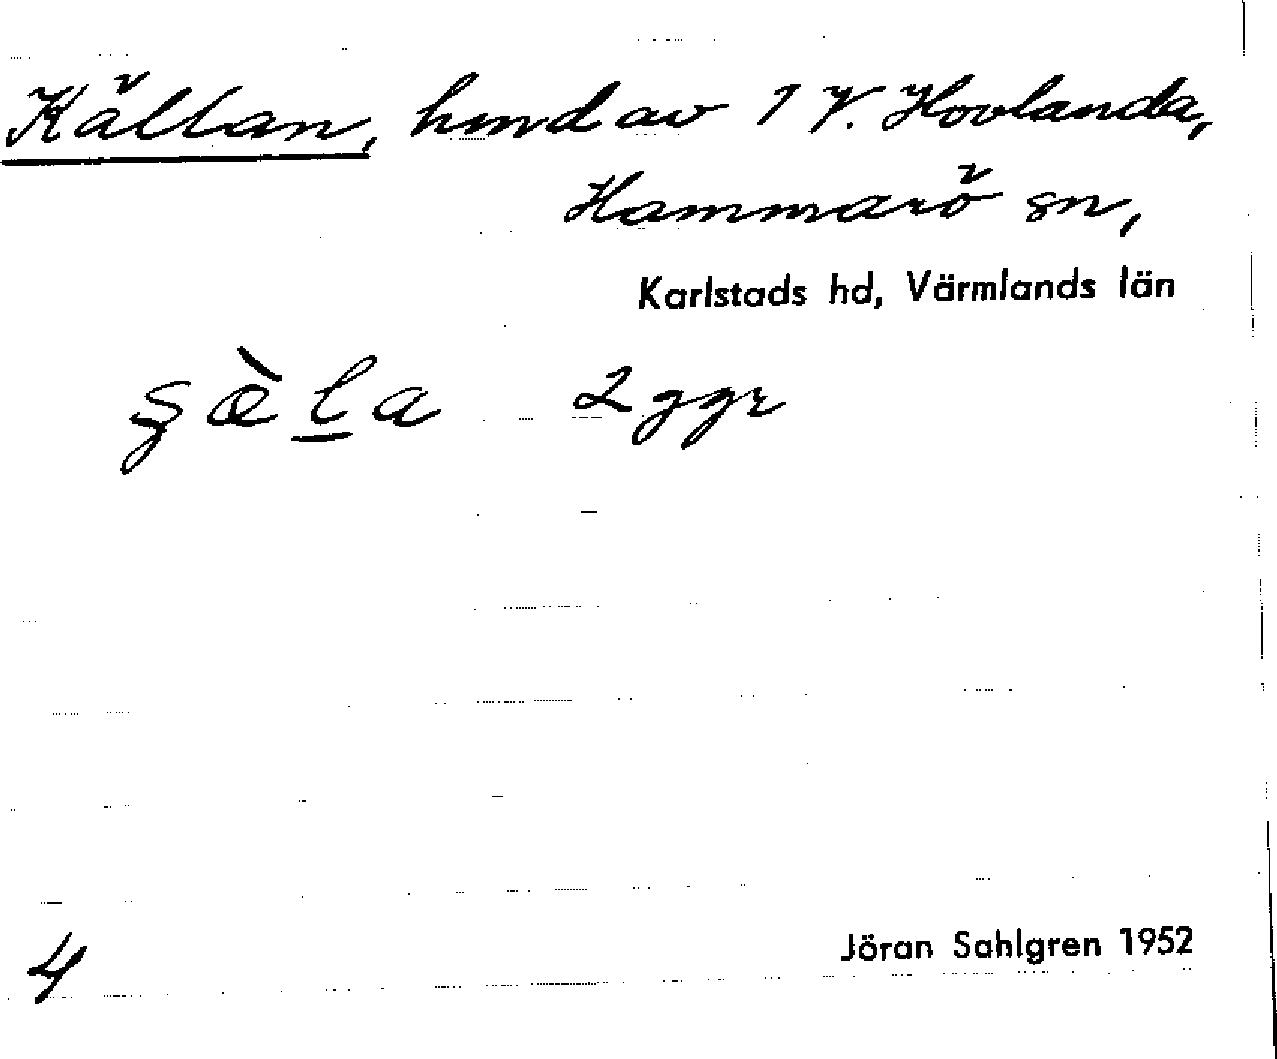 Källan, hmd av 1 V. Hovlanda,
Hammarö sn,
Karlstads hd, Värmlands län
2 ggr
4
Jöran Sahlgren 1952